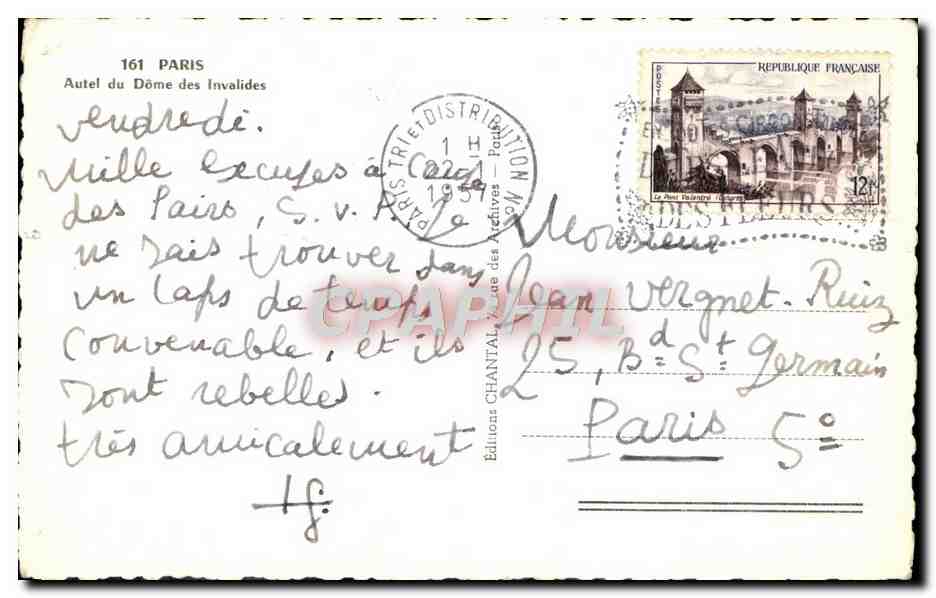 161 PARIS
Autel du Dôme des Invalides
vendredi.
Mille excuses à
des Pairs, S.v.P. Je
ne sais trouver dans
un laps de temps
convenable, et ils
sont rebelles.
très amicalement
Editions CHANTAL, rue des Archives - Paris
PARIS TRI et DISTRIBUTION No
1 H
22-1
1957
REPUBLIQUE FRANÇAISE
POSTES
Le Pont Valentré (Cahors)
12F
DES FLEURS
Monsieur
Jean Vergnet-Ruiz
25, Bd St Germain
Paris 5e
CPAPHIL